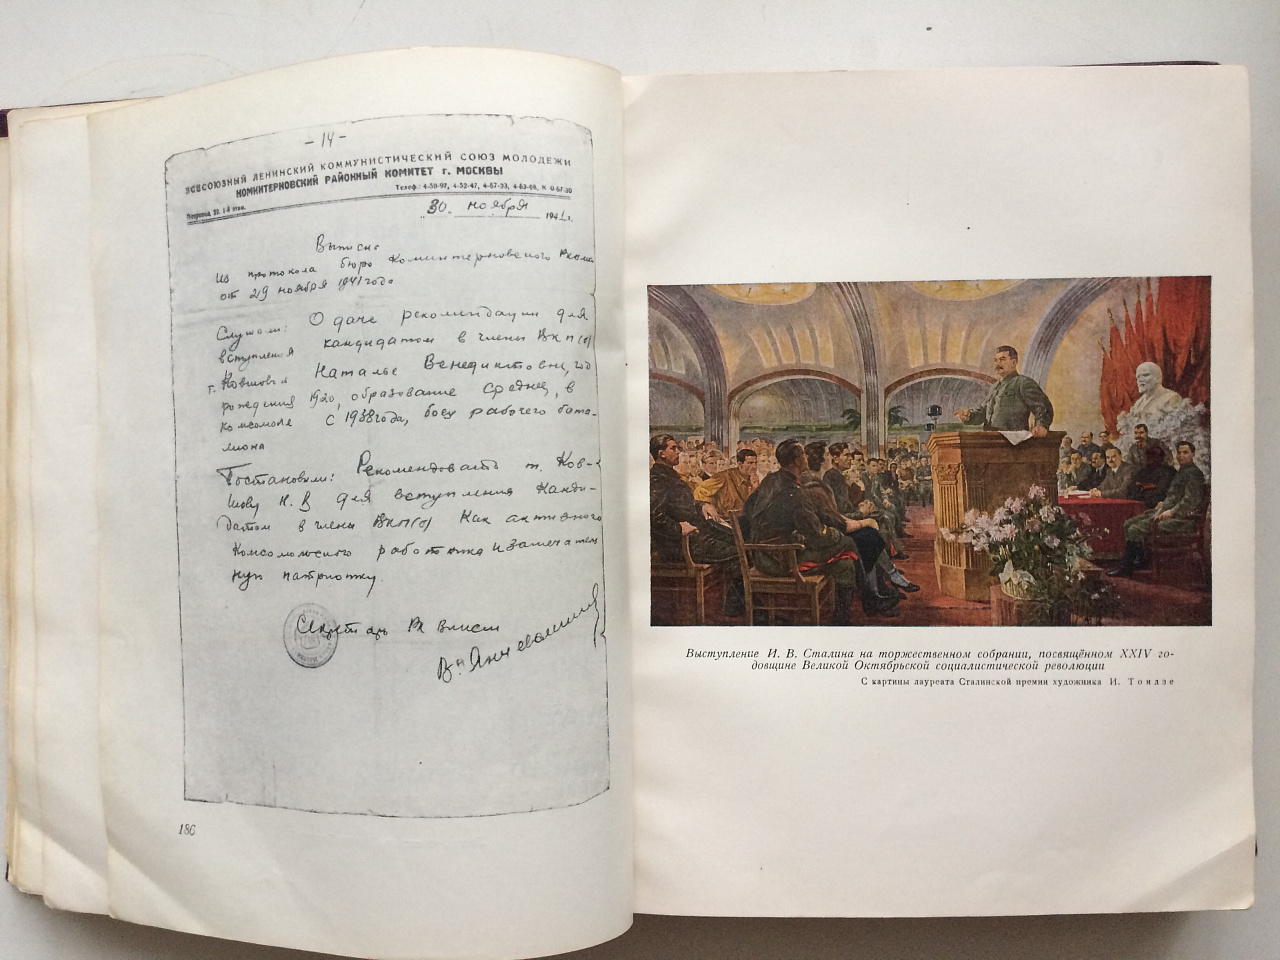 -14-
ВСЕСОЮЗНЫЙ ЛЕНИНСКИЙ КОММУНИСТИЧЕСКИЙ СОЮЗ МОЛОДЕЖИ
КОМИНТЕРНОВСКИЙ РАЙОННЫЙ КОМИТЕТ г. МОСКВЫ
Телеф.: 4-50-97, 4-52-47, 4-67-33, 4-63-68, К 0-67-30
"30" ноября 1941 г.
Выписка
из протокола бюро Коминтерновского Райком
от 29 ноября 1941 года
Слушали: О даче рекомендации для
вступления кандидатом в члены ВКП(б)
т. Ковшовой Наталье Венедиктовны, год
рождения 1920, образование средн, в
комсомоле с 1938 года, боец рабочего бата-
лиона
Постановили: Рекомендовать т. Ков-
шову Н. В для вступления Канди-
датом в члены ВКП(б) Как активного
комсомольского работника и замечатель
ную патриотку.
Секретарь РК ВЛКСМ
186
Выступление И. В. Сталина на торжественном собрании, посвящённом XXIV го-
довщине Великой Октябрьской социалистической революции
С картины лауреата Сталинской премии художника И. Тоидзе